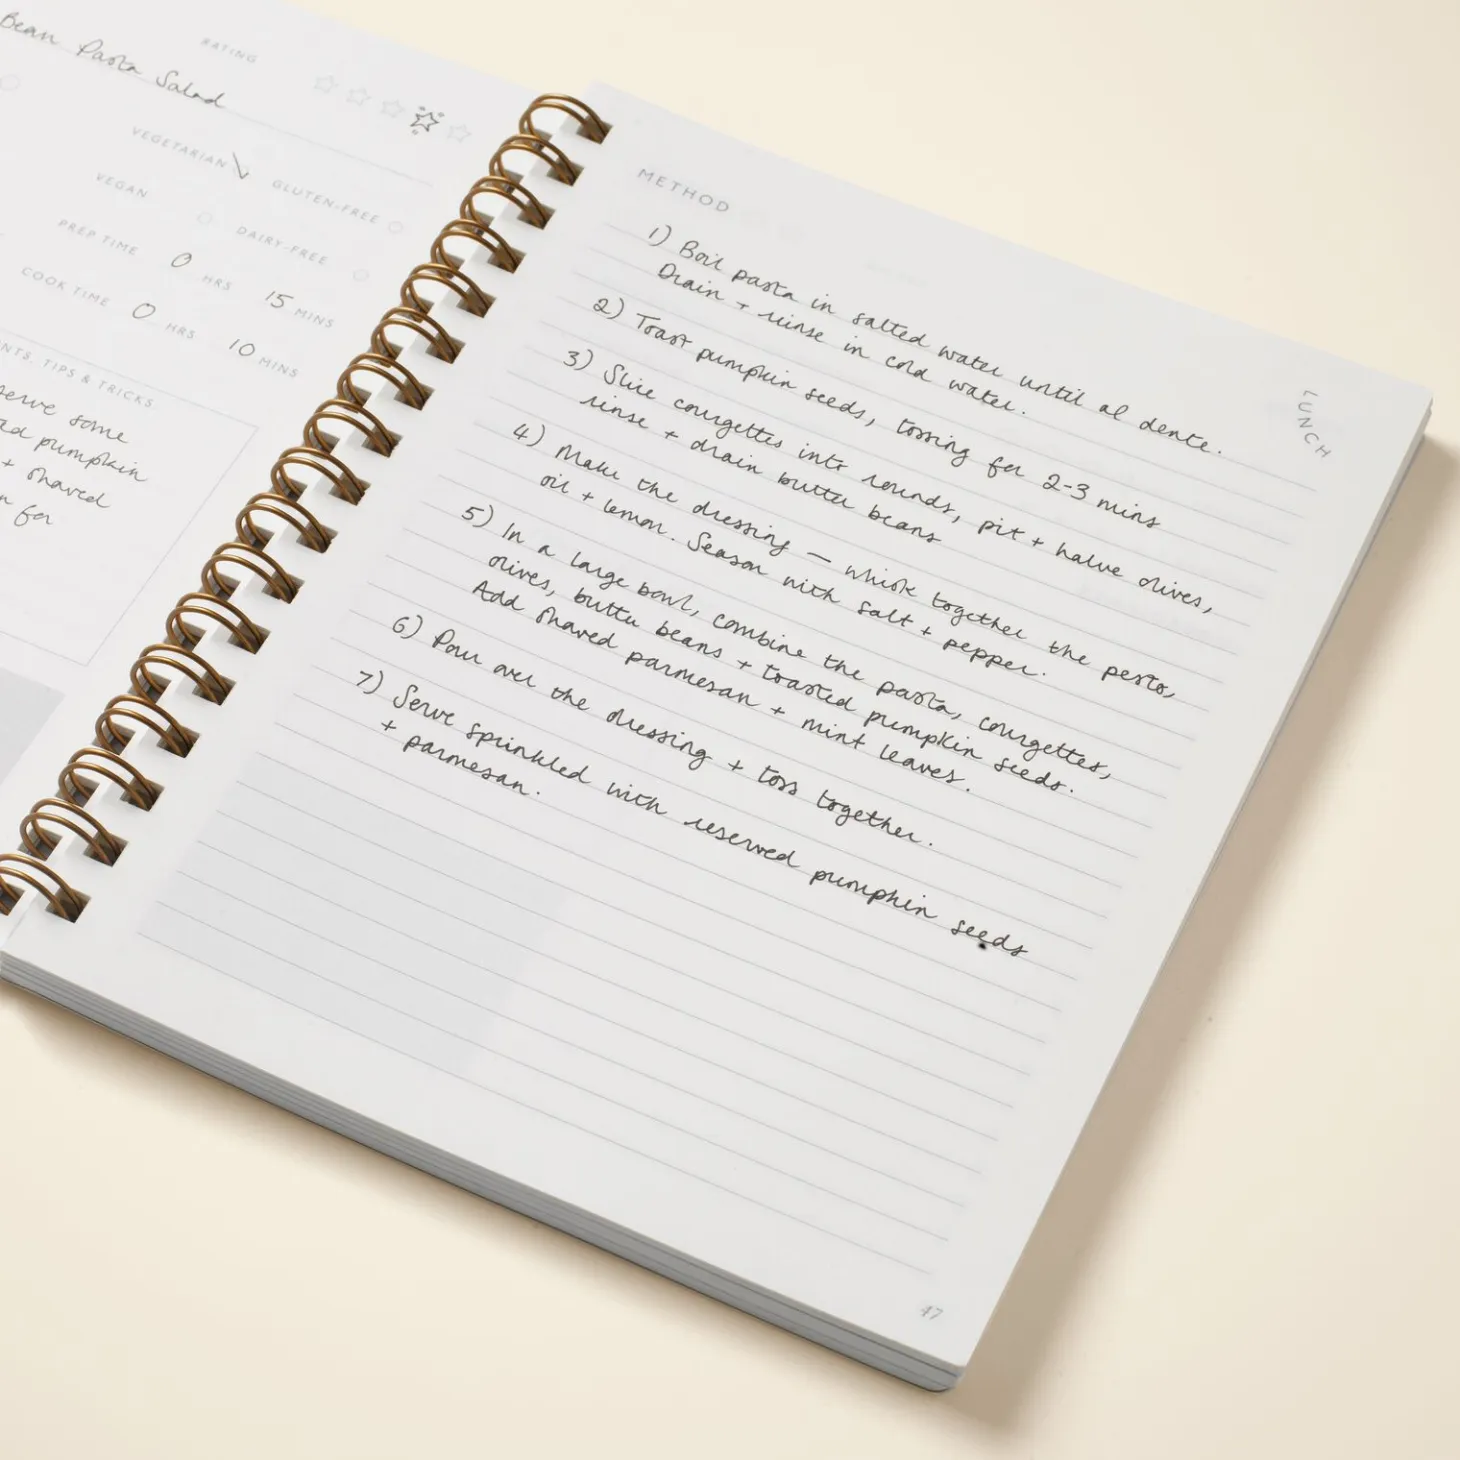 Bean Pasta Salad
RATING
VEGETARIAN
GLUTEN-FREE
VEGAN
DAIRY-FREE
PREP TIME 0 HRS 15 MINS
COOK TIME 0 HRS 10 MINS
TIPS & TRICKS
serve some
pumpkin
+ shaved
for
METHOD
1) Boil pasta in salted water until al dente.
Drain + rinse in cold water.
2) Toast pumpkin seeds, tossing for 2-3 mins
3) Slice courgettes into rounds, pit + halve olives,
rinse + drain butter beans
4) Make the dressing — whisk together the pesto,
oil + lemon. Season with salt + pepper.
5) In a large bowl, combine the pasta, courgettes,
olives, butter beans + toasted pumpkin seeds.
Add shaved parmesan + mint leaves.
6) Pour over the dressing + toss together.
7) Serve sprinkled with reserved pumpkin seeds
+ parmesan.
LUNCH
47